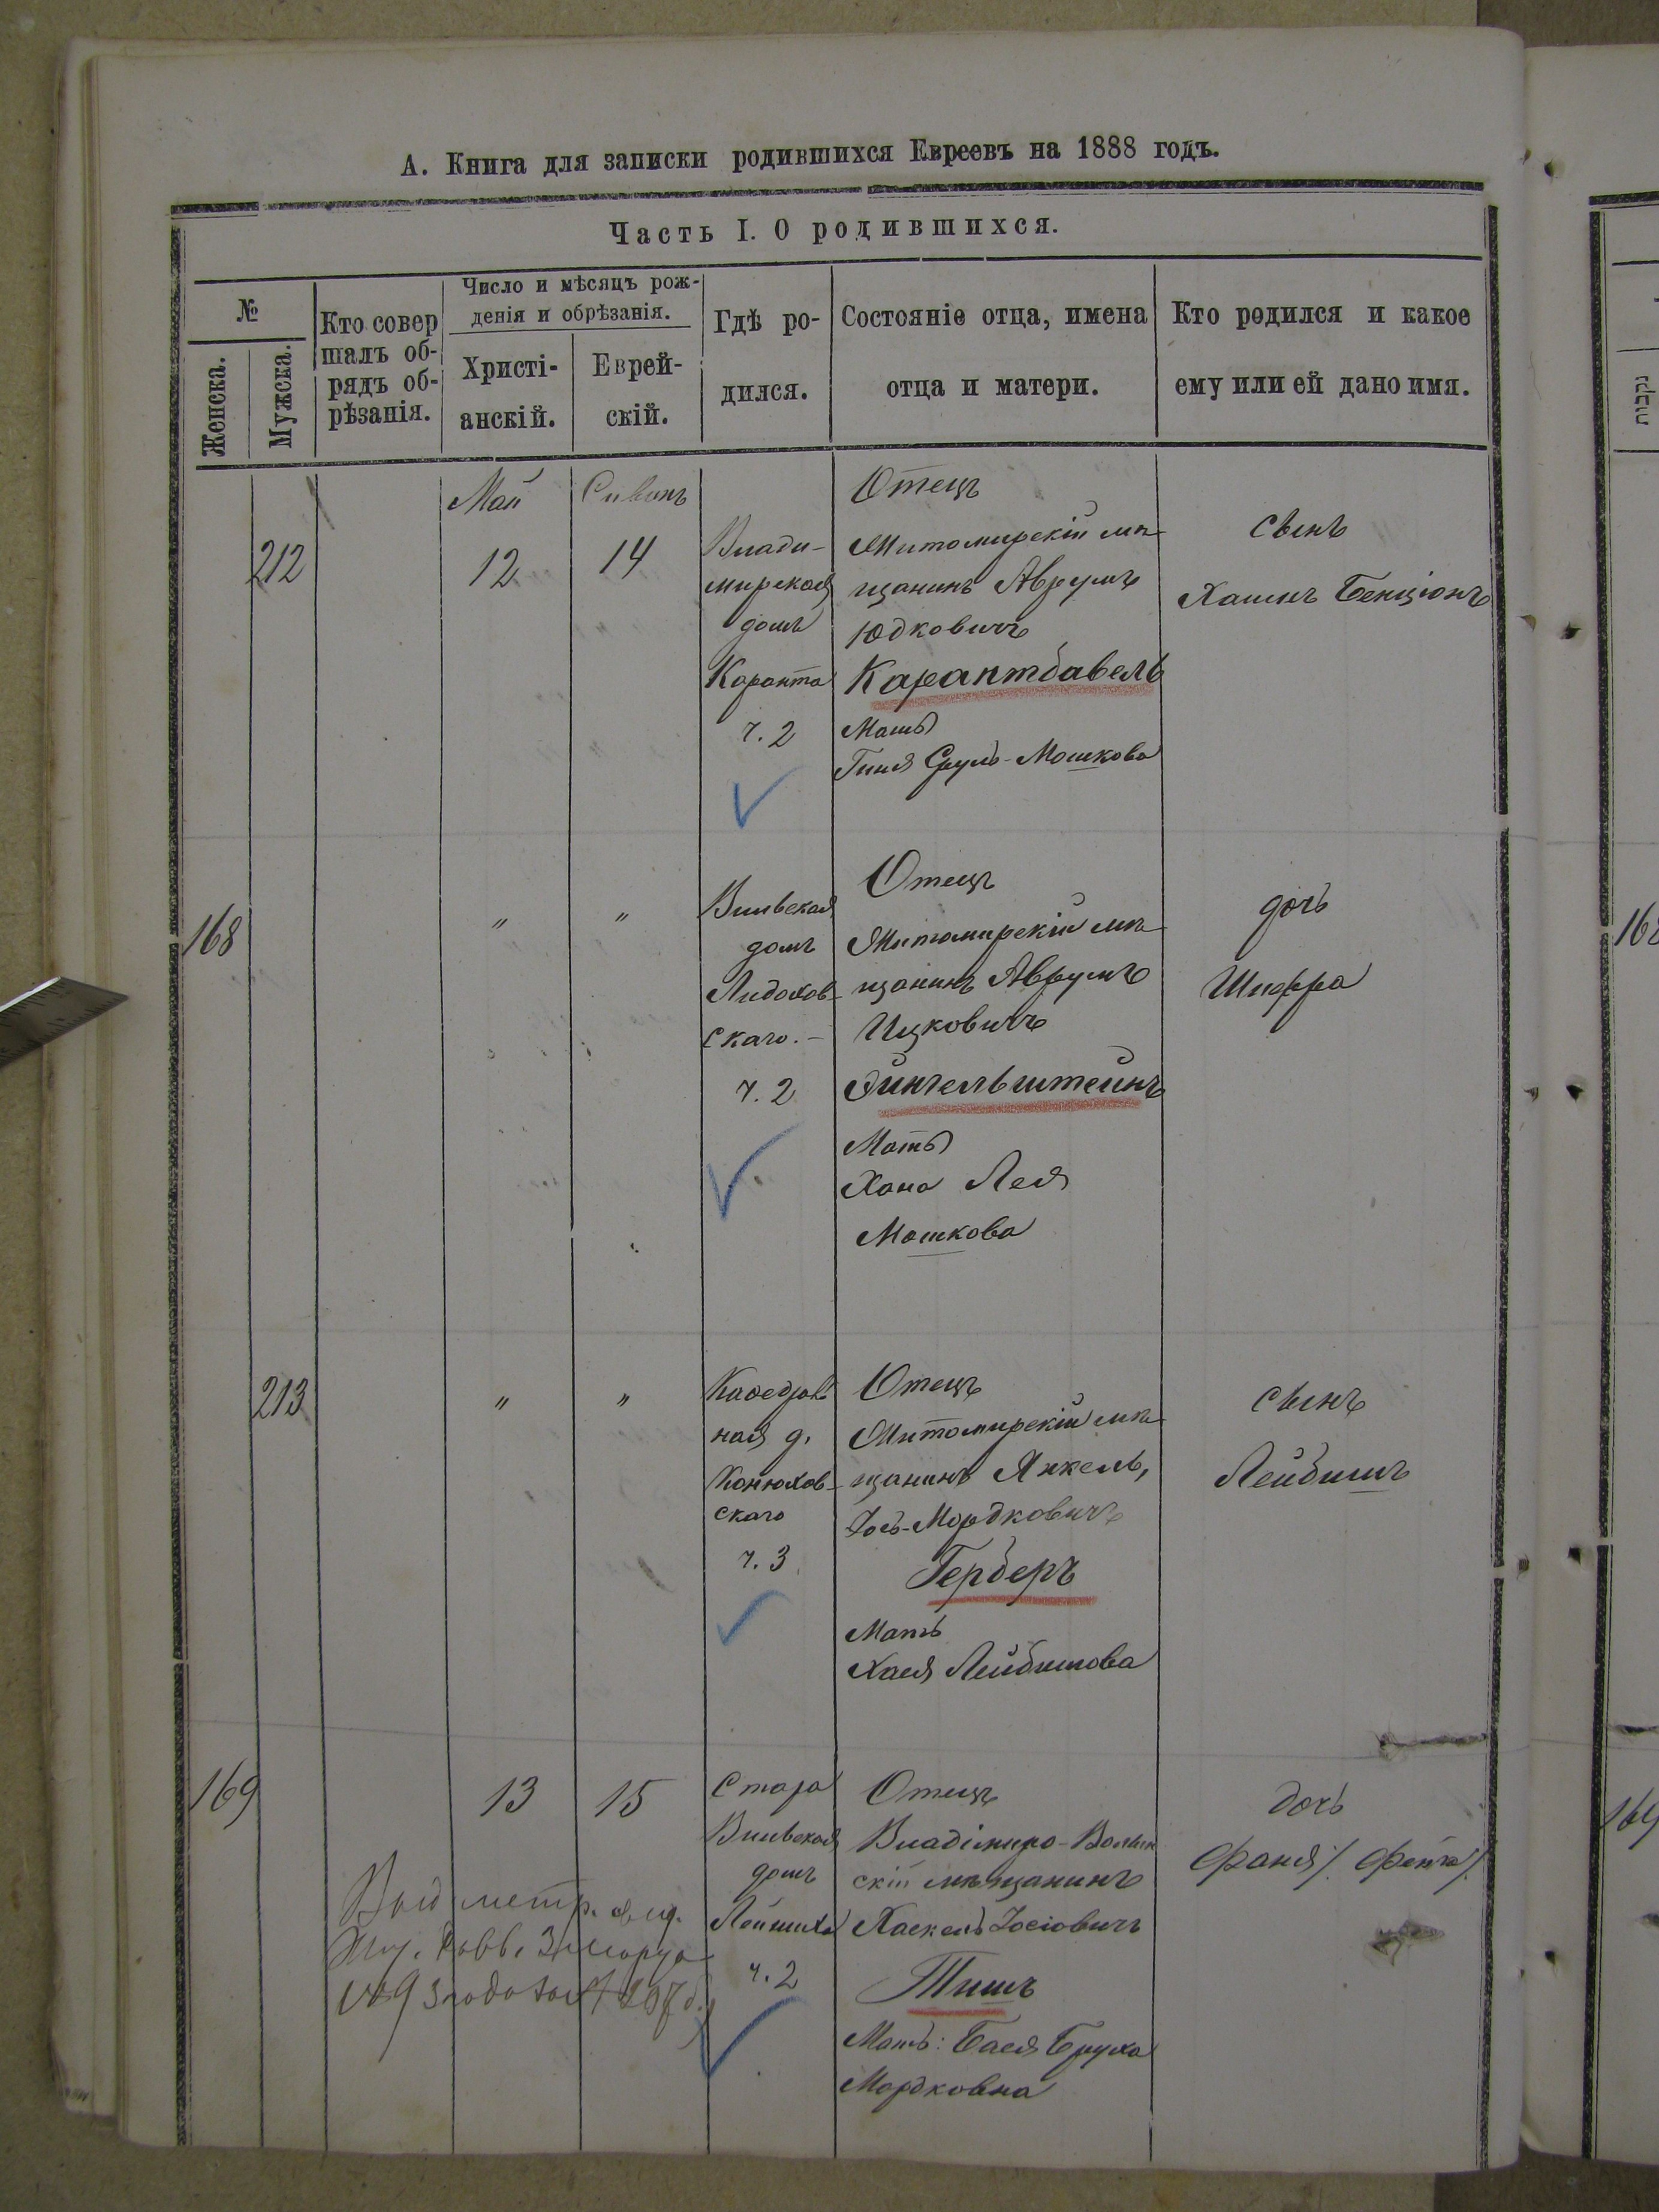 А. Книга для записки родившихся Евреевъ на 1888 годъ.
Часть I. О родившихся.
№
Женска.
Мужска.
Кто совер
шалъ об-
рядъ об-
рѣзанія.
Число и мѣсяцъ рож-
денія и обрѣзанія.
Христі-
анскій.
Еврей-
скій.
Гдѣ ро-
дился.
Состояніе отца, имена
отца и матери.
Кто родился и какое
ему или ей дано имя.
212
Май
12
Сивонъ
14
Влади-
мирская
домъ
Каранта
ч. 2
Отецъ
Житомирскій мѣ-
щанинъ Аврумъ
Юдковичъ
Карантбавель
Мать
Гиня Сруль-Мошкова
сынъ
Хаимъ Бенціонъ
168
"
"
Вильская
домъ
Лидохов-
скаго.-
ч. 2
Отецъ
Житомирскій мѣ-
щанинъ Аврумъ
Ицковичъ
Фингельштейнъ
Мать
Хана Лея
Мошкова
дочь
Шифра
213
"
"
Каѳедраль
ная д.
Конюхов-
скаго
ч. 3
Отецъ
Житомирскій мѣ-
щанинъ Янкель,
Іось-Мордковичъ
Герберъ
Мать
Хая Лейбишова
сынъ
Лейбишъ
169
13
15
Стара
Вильская
домъ
ч. 2
Отецъ
Владиміро-Волын
скій мѣщанинъ
Хаскель Іосіовичъ
Тишъ
Мать: Бася Бруха
Мордковна
дочь
Фаня /. Фейга /.
Выд метр. свид.
168
169